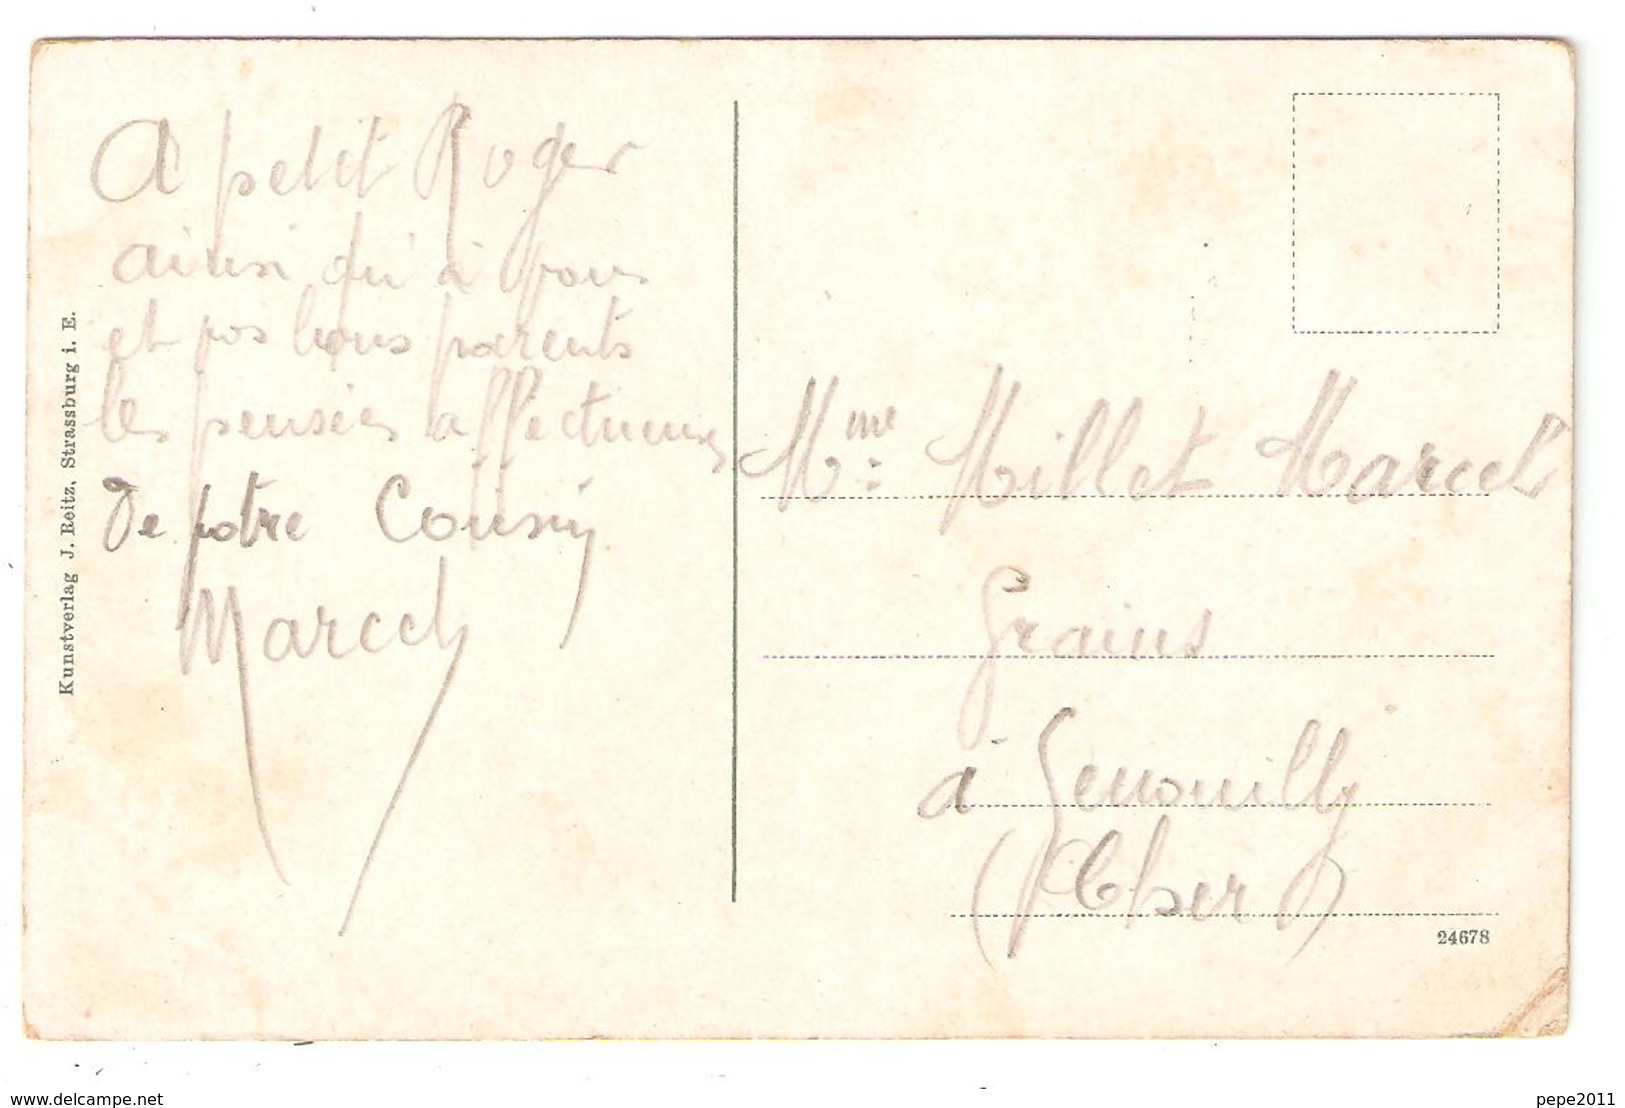 A petit Roger
ainsi qu'à vous
et vos bons parents
les pensées affectueuses
De votre Cousin
Marcel
Mme: Millet Marcel
Grains
à Genouilly
(Cher)
24678
Kunstverlag J. Reitz, Strassburg i. E.
www.delcampe.net
pepe2011